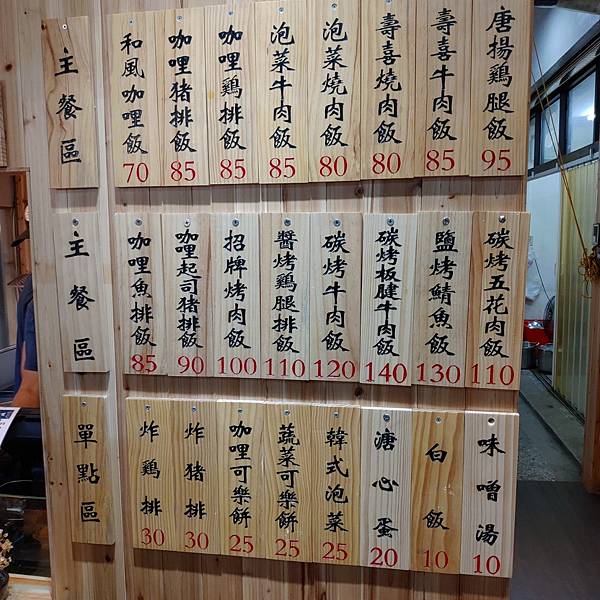 主餐區
和風咖哩飯 70
咖哩猪排飯 85
咖哩鷄排飯 85
泡菜牛肉飯 85
泡菜燒肉飯 80
壽喜燒肉飯 80
壽喜牛肉飯 85
唐揚鷄腿飯 95
主餐區
咖哩魚排飯 85
咖哩起司猪排飯 90
招牌烤肉飯 100
醬烤鷄腿排飯 110
碳烤牛肉飯 120
碳烤板腱牛肉飯 140
鹽烤鯖魚飯 130
碳烤五花肉飯 110
單點區
炸鷄排 30
炸猪排 30
咖哩可樂餅 25
蔬菜可樂餅 25
韓式泡菜 25
溏心蛋 20
白飯 10
味噌湯 10